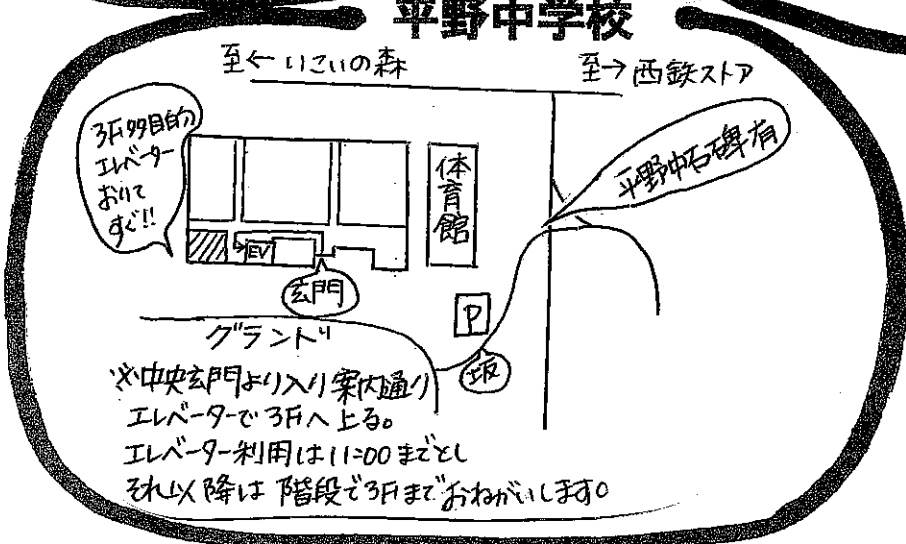 平野中学校
至← いこいの森
至→ 西鉄ストア
3F多目的
エレベーター
おりて
すぐ!!
体育館
平野中石碑有
EV
玄門
P
グランド
坂
※中央玄門より入り案内通り
エレベーターで3Fへ上る。
エレベーター利用は11:00までとし
それ以降は階段で3Fまでおねがいします。